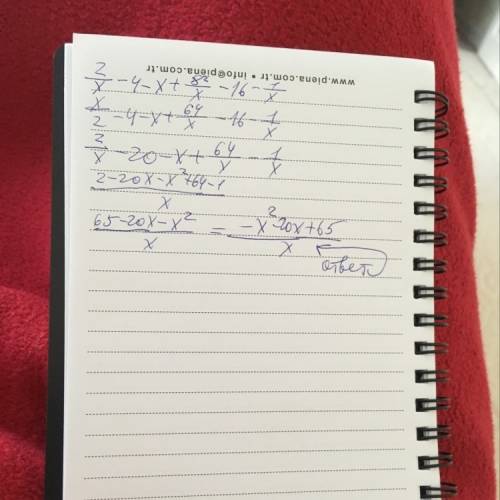 www.piena.com.tr • info@piena.com.tr
2/x - 4 - x + 8²/x - 16 - 1/x
x/2 - 4 - x + 64/x - 16 - 1/x
2/x - 20 - x + 64/x - 1/x
(2 - 20x - x² + 64 - 1)/x
(65 - 20x - x²)/x = (-x² - 20x + 65)/x
ответ